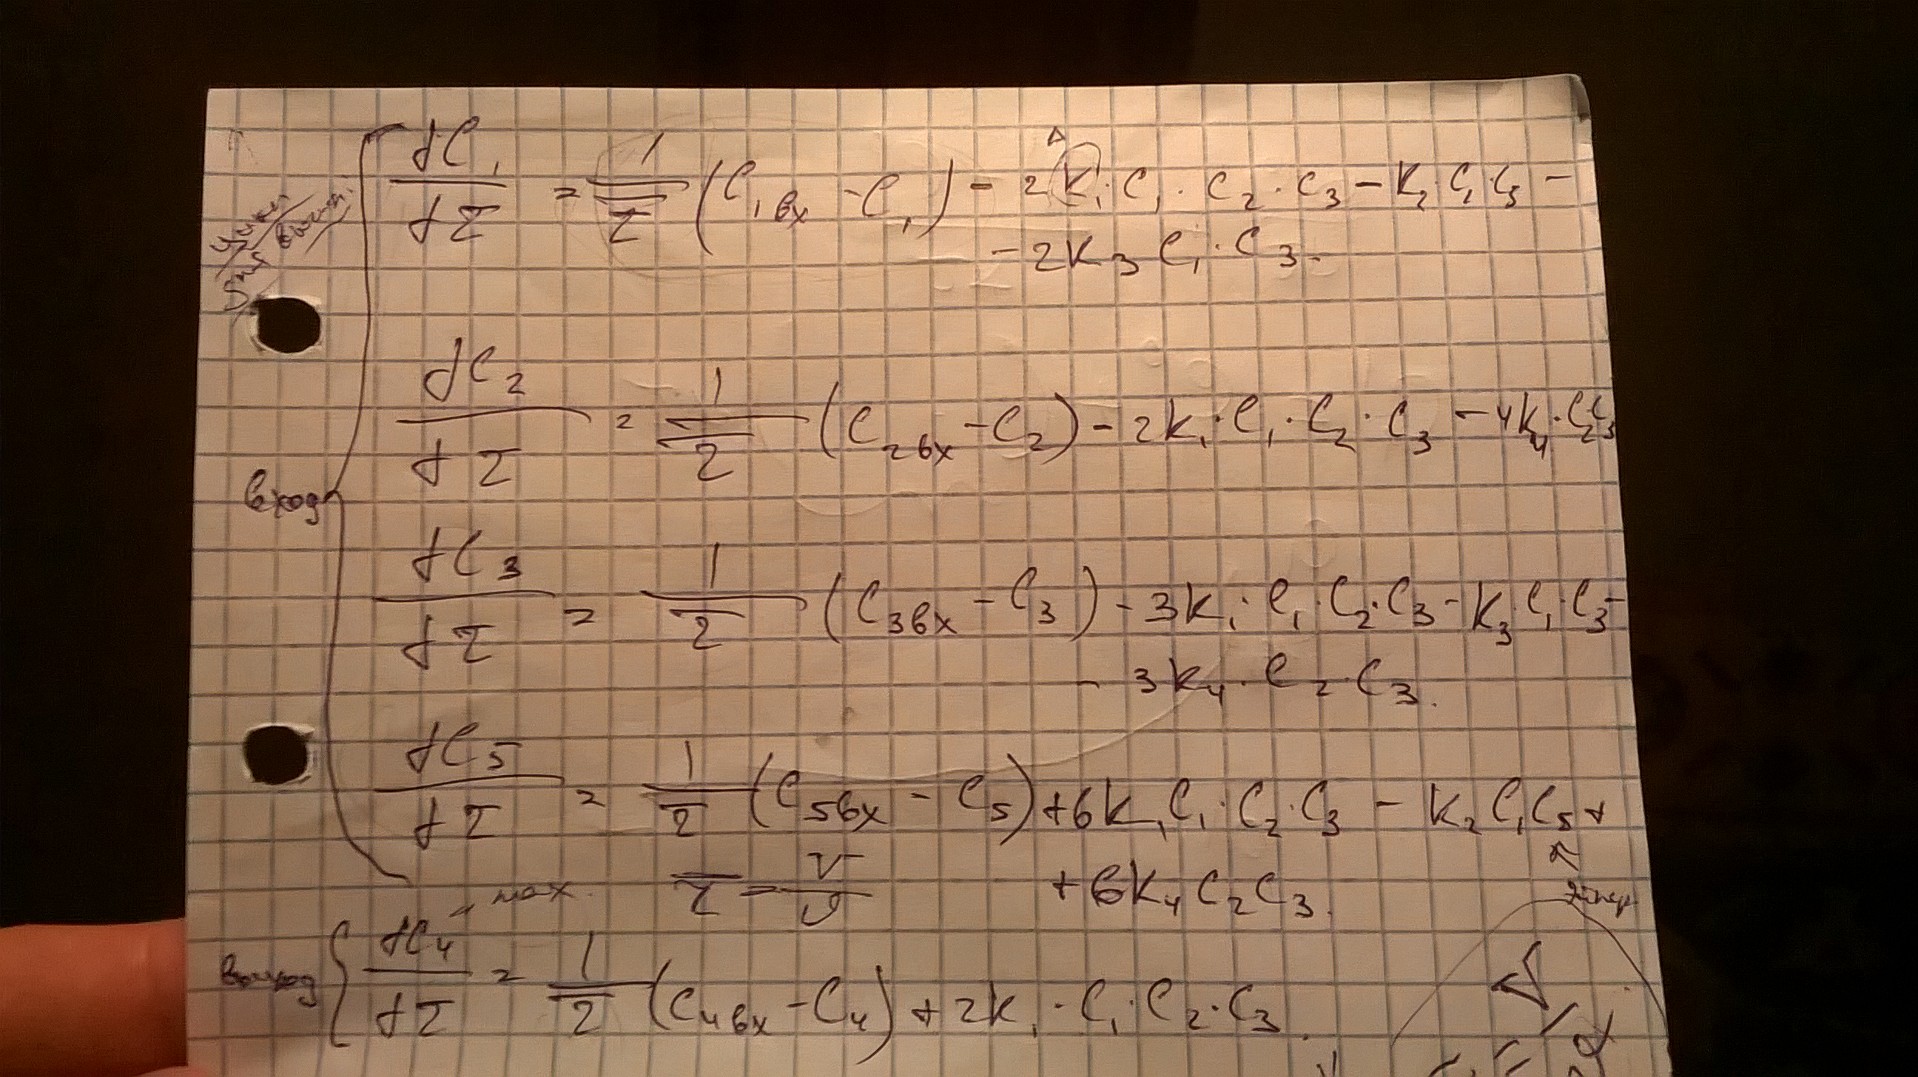 dC₁/dτ = 1/τ̅ (C₁вх - C₁) - 2K₁·C₁·C₂·C₃ - K₂C₁C₅ -
- 2K₃C₁·C₃.
dC₂/dτ = 1/τ̅ (C₂вх - C₂) - 2K₁·C₁·C₂·C₃ - 4K₄·C₂C₃
вход
dC₃/dτ = 1/τ̅ (C₃вх - C₃) - 3K₁·C₁·C₂·C₃ - K₃·C₁·C₃ -
- 3K₄·C₂·C₃.
dC₅/dτ = 1/τ̅ (C₅вх - C₅) + 6K₁C₁·C₂·C₃ - K₂C₁C₅ +
τ̅ = V/υ + 6K₄C₂C₃.
max
выход dC₄/dτ = 1/τ̅ (C₄вх - C₄) + 2K₁·C₁·C₂·C₃.